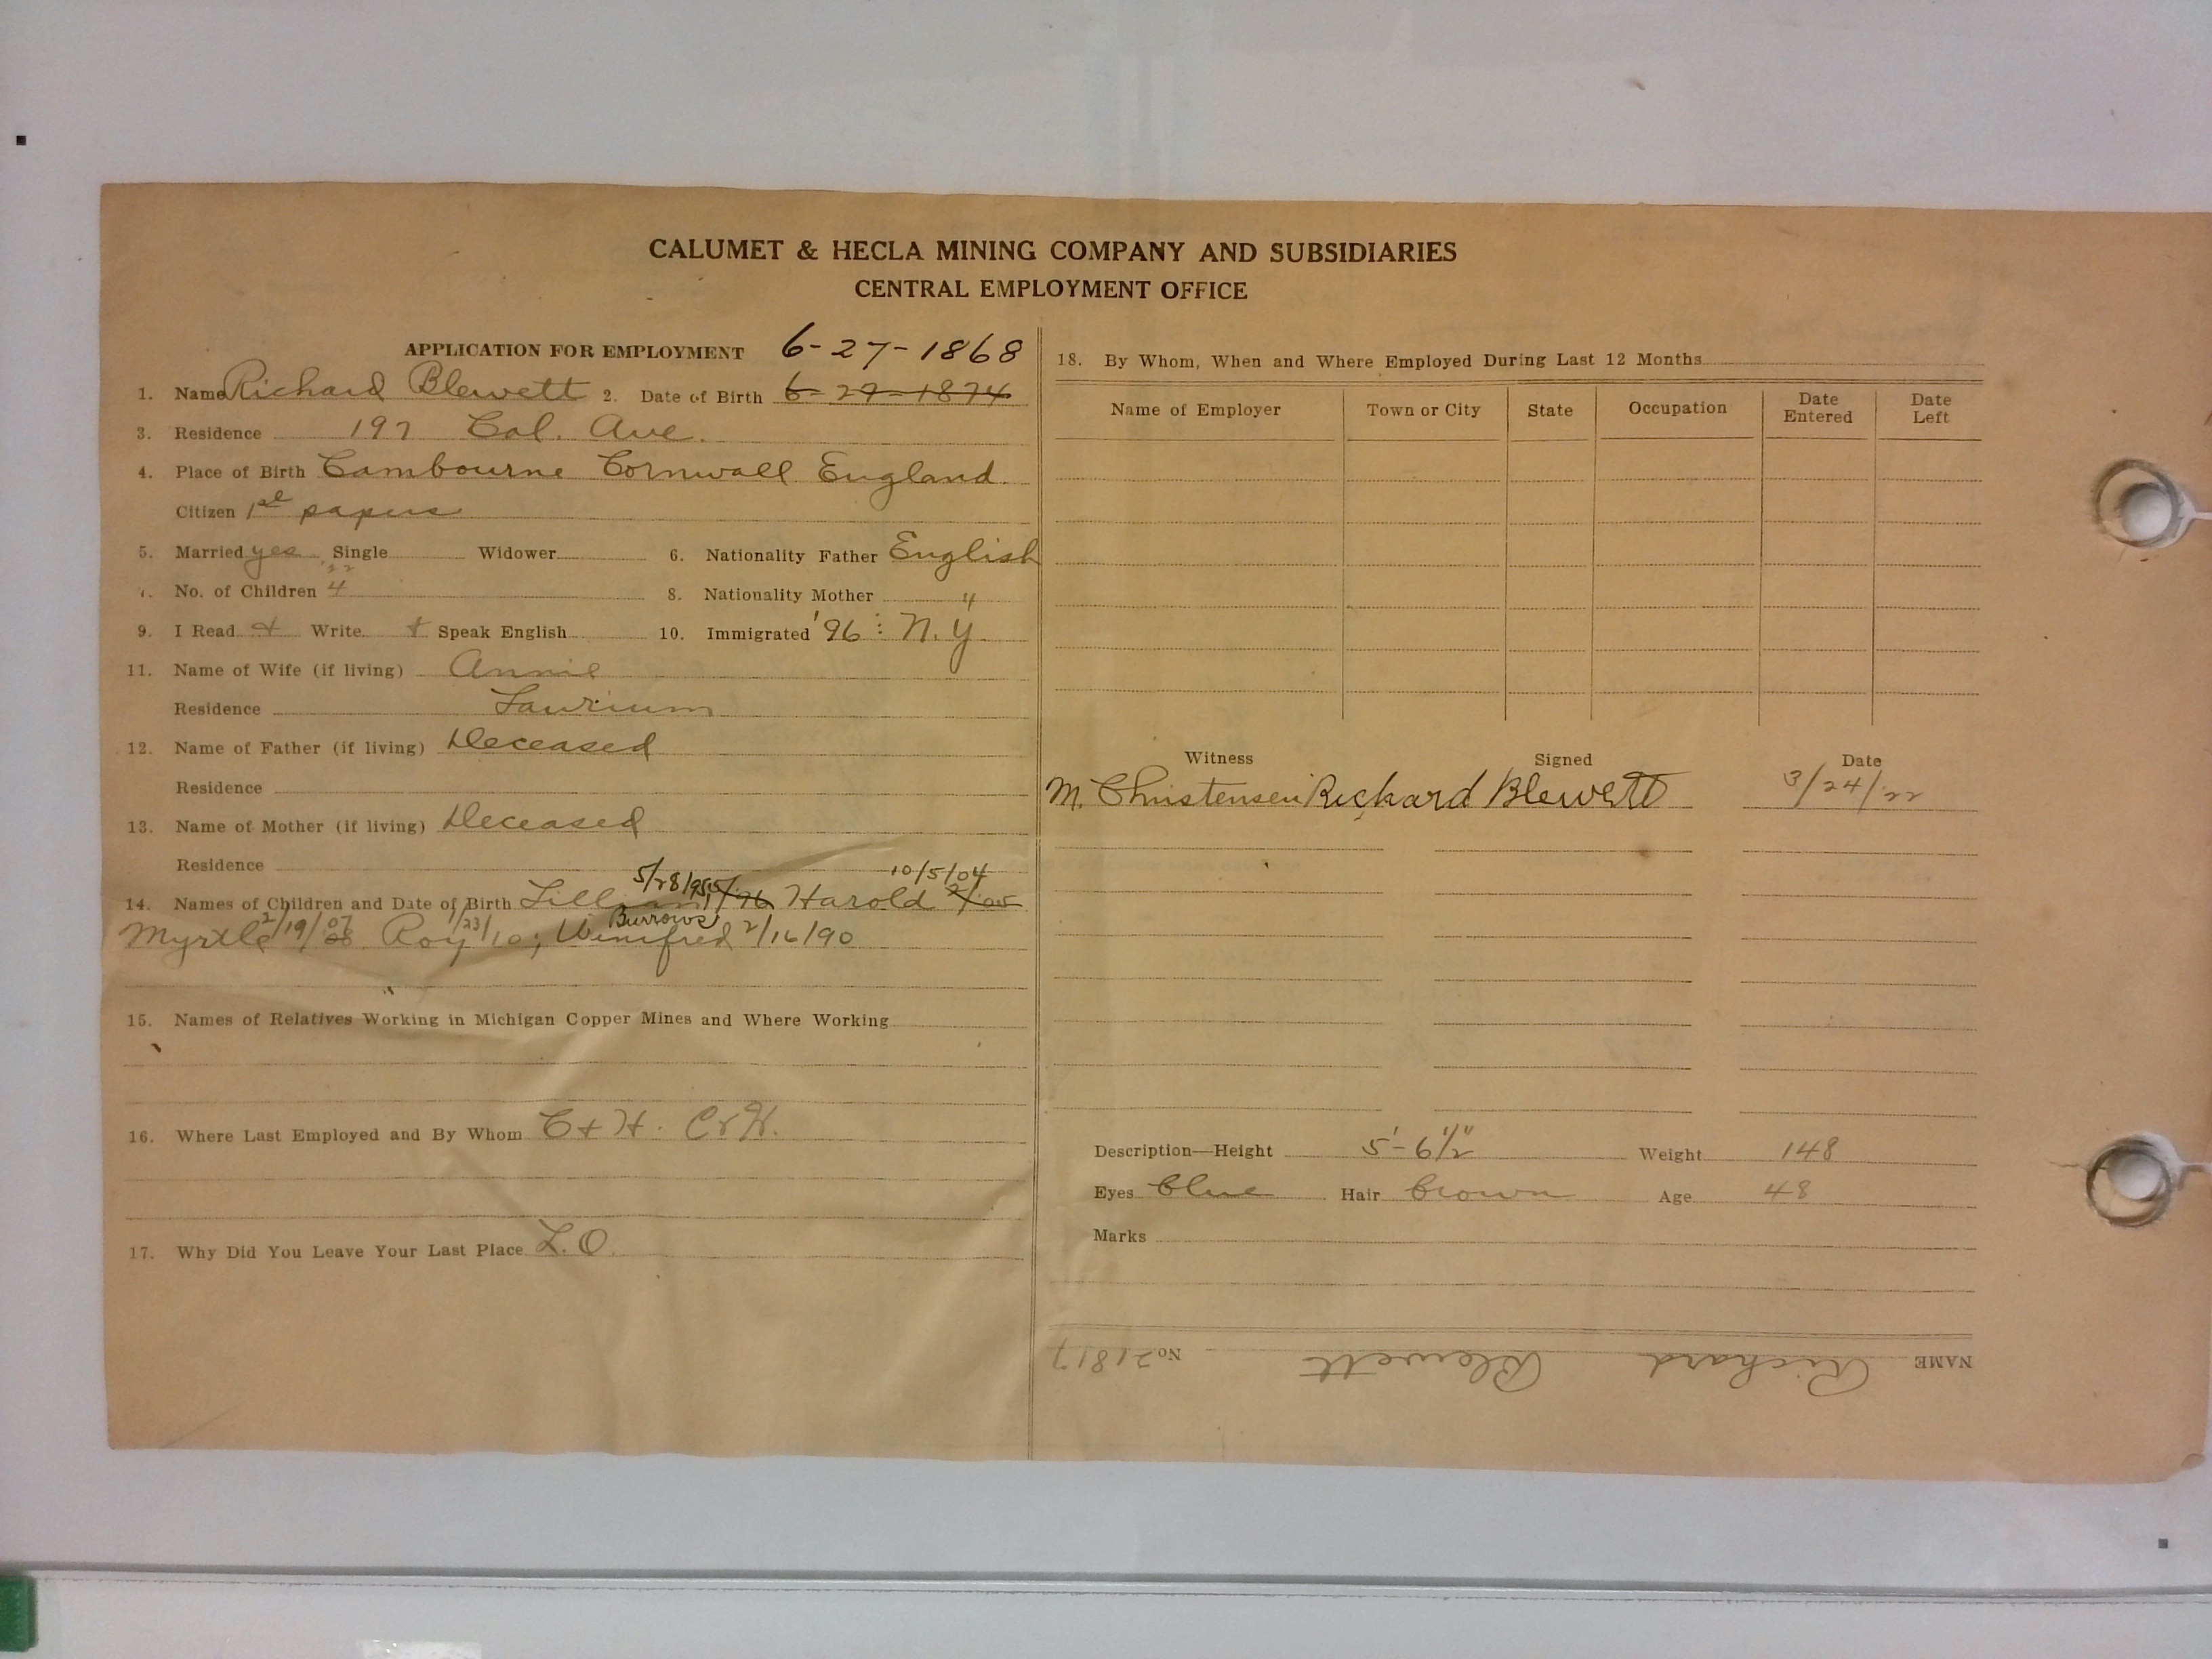 CALUMET & HECLA MINING COMPANY AND SUBSIDIARIES
CENTRAL EMPLOYMENT OFFICE
APPLICATION FOR EMPLOYMENT 6-27-1868
1. Name Richard Blewett 2. Date of Birth 6-27-1874
3. Residence 197 Cal. Ave.
4. Place of Birth Cambourne Cornwall England
Citizen 1st papers
5. Married yes Single Widower 6. Nationality Father English
7. No. of Children 4 8. Nationality Mother "
9. I Read + Write + Speak English 10. Immigrated '96 : N.Y.
11. Name of Wife (if living) Annie
Residence Laurium
12. Name of Father (if living) Deceased
Residence
13. Name of Mother (if living) Deceased
Residence
5/28/95 10/5/04
14. Names of Children and Date of Birth Lillian Harold
Burrows
Myrtle 2/19/07 Roy 1/23/10; Winifred 2/16/90
15. Names of Relatives Working in Michigan Copper Mines and Where Working
16. Where Last Employed and By Whom C+H. C&H.
17. Why Did You Leave Your Last Place L.O.
18. By Whom, When and Where Employed During Last 12 Months
Name of Employer Town or City State Occupation Date Entered Date Left
Witness Signed Date
M. Christensen Richard Blewett 3/24/22
Description—Height 5'-6 1/2" Weight 148
Eyes blue Hair brown Age 48
Marks
NAME Richard Blewett No. 21817